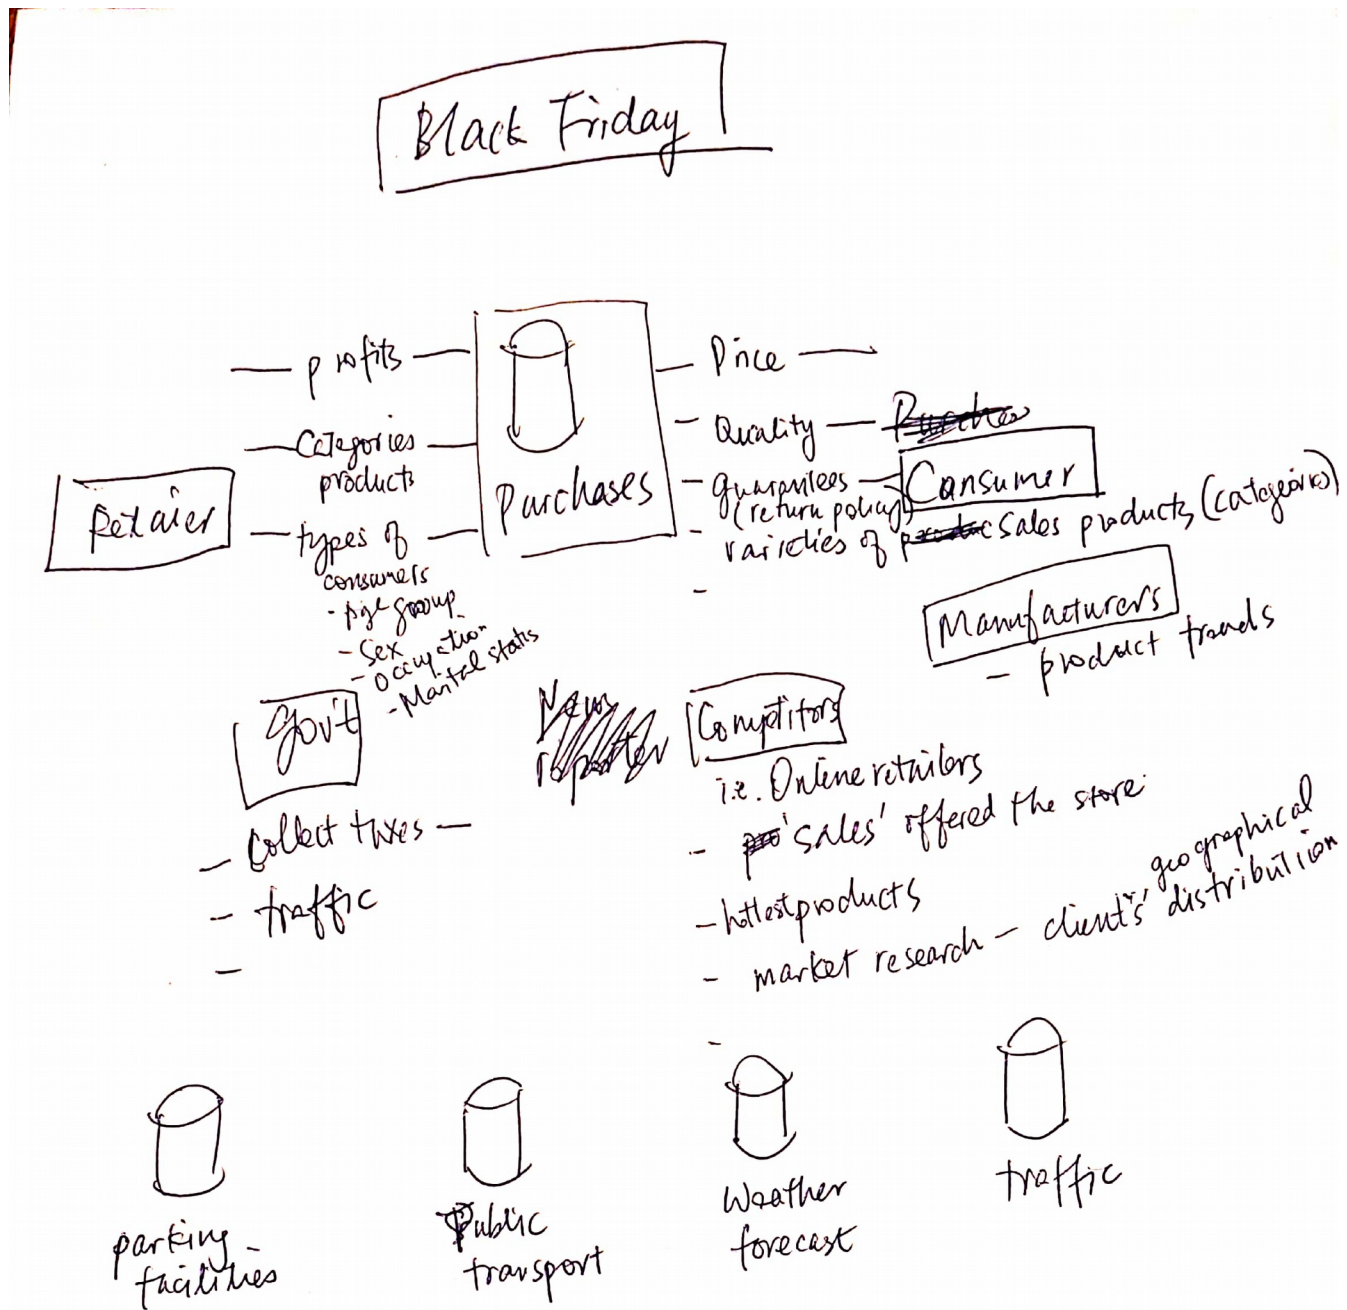 Black Friday
profits
Categories
products
types of
consumers
- Age group
- Sex
- Occupation
- Marital status
Retaier
Purchases
Price
Quality
guarantees
(return policy)
vaireties of sales products (categories)
Consumer
Manufacturers
- product trends
Gov't
- Collect taxes -
- traffic
-
News
reporter
Comptitors
i.e. Online retailers
- 'sales' offered the store
- hottest products
- market research - clients' geographical
distribution
-
parking
facilities
Public
transport
Weather
forecast
traffic